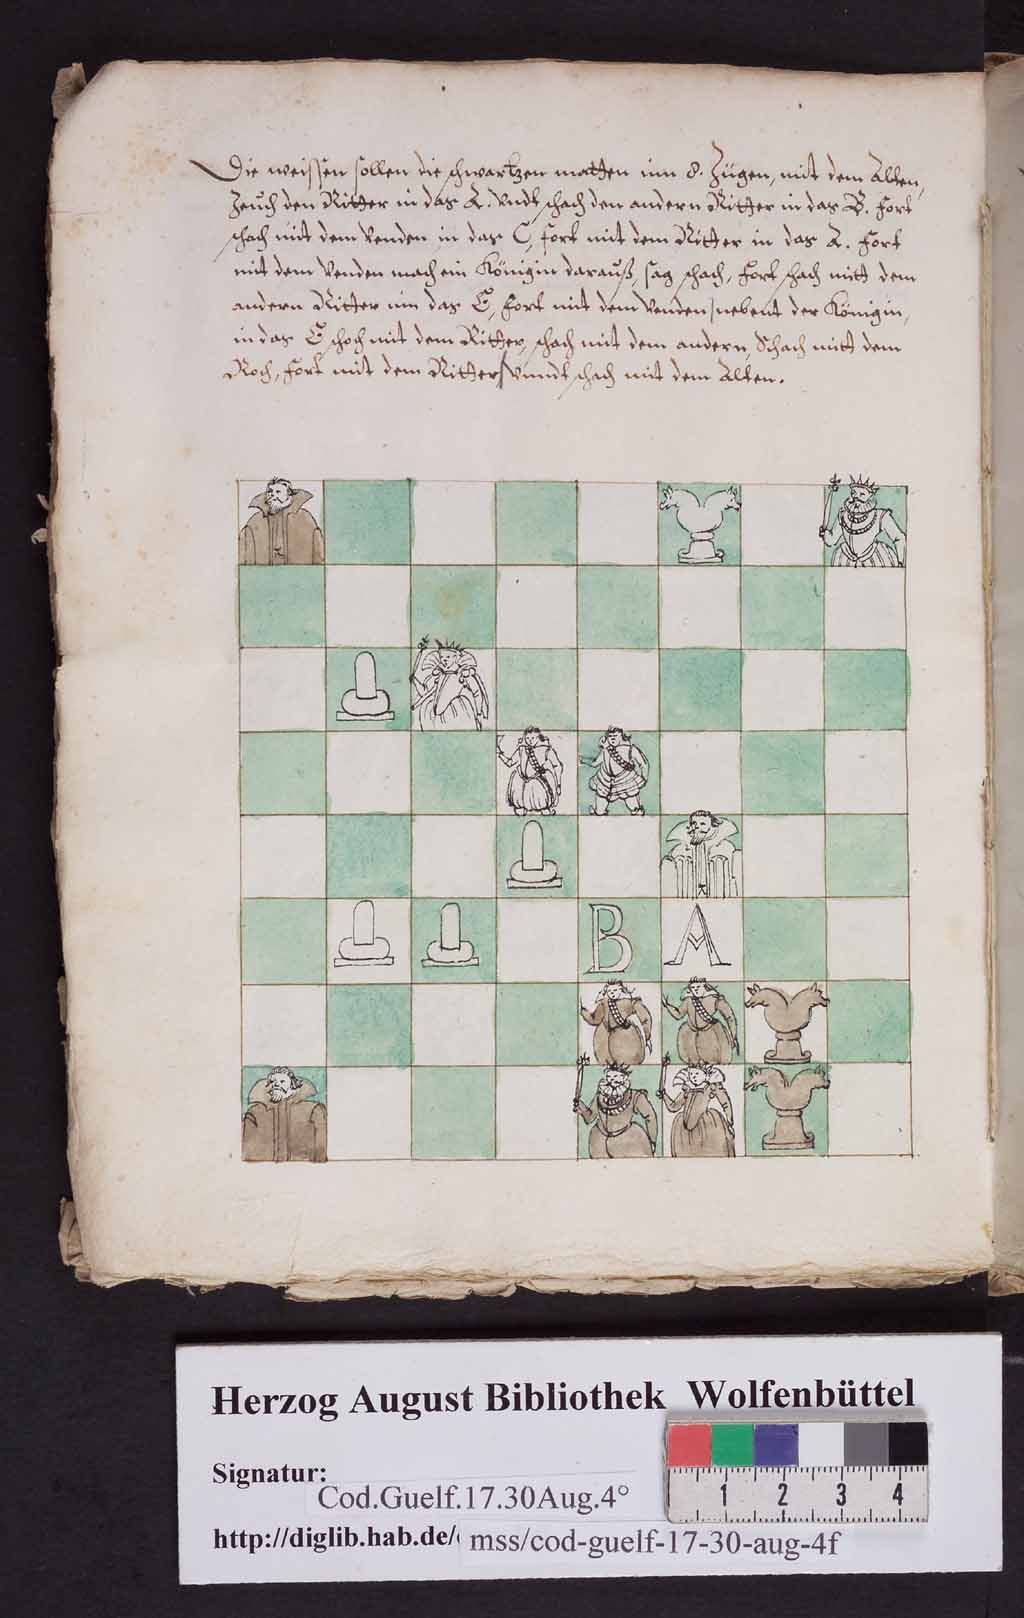 Die weissen sollen die schwartzen matten inn 8. Zügen, mit dem Alten,
Zeuch den Ritter in das A. vndt schach den andern Ritter in das B. fort
schach mit dem Venden in das C, fort mit dem Ritter in das A. fort
mit dem Venden mach ein Königin darauß, sag schach, fort schach mitt dem
andern Ritter inn das fort mit dem Venden nebent der Königin,
in das schoch mit dem Ritter, schach mit dem andern, Schach mitt dem
Roch, fort mit dem Ritter vnndt schach mit dem Alten.
B A
Herzog August Bibliothek Wolfenbüttel
Signatur:
Cod.Guelf.17.30Aug.4°
http://diglib.hab.de/ mss/cod-guelf-17-30-aug-4f
1 2 3 4